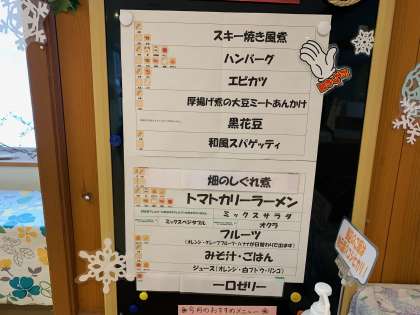 スキー焼き風煮
ハンバーグ
エビカツ
厚揚げ煮の大豆ミートあんかけ
黒花豆
和風スパゲッティ
畑のしぐれ煮
トマトカリーラーメン
ミックスサラダ
ミックスベジタブル
オクラ
フルーツ
(オレンジ・グレープフルーツ・バナナが日替わりで出ます)
みそ汁・ごはん
ジュース(オレンジ・白ブドウ・リンゴ)
一口ゼリー
今月のおすすめメニュー